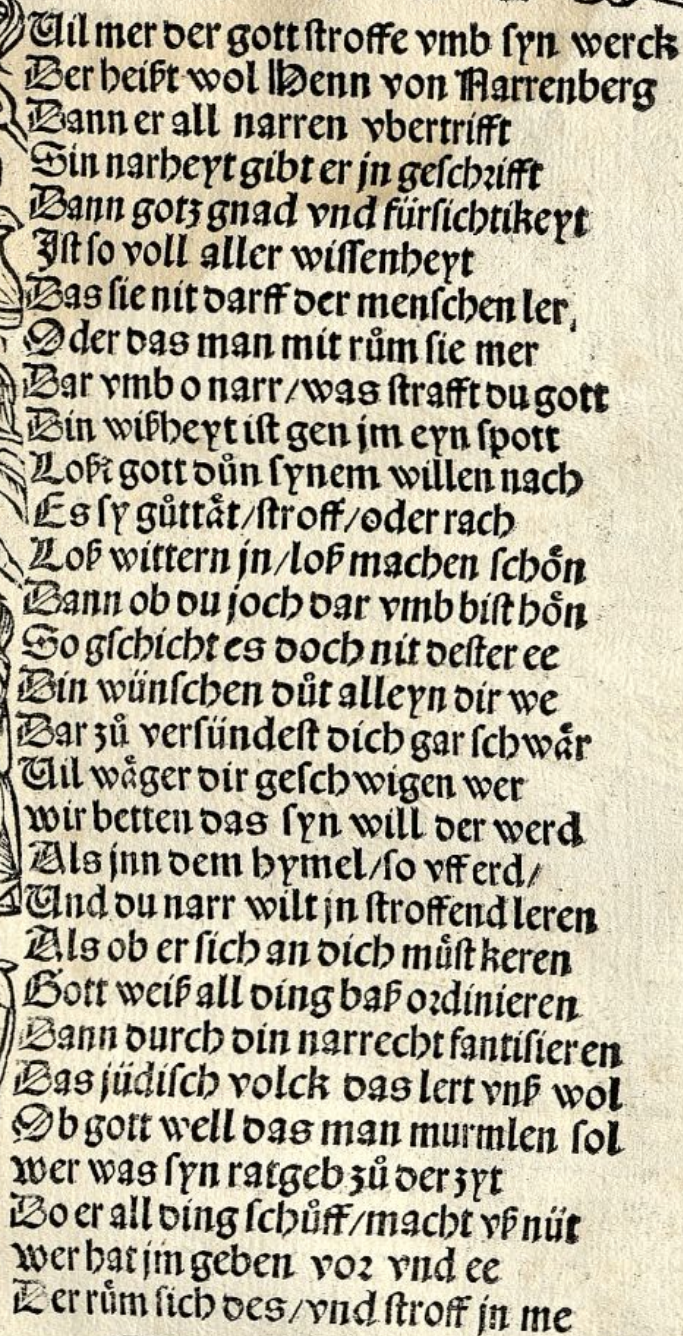 Uil mer der gott stroffe vmb syn werck
Der heißt wol Henn von Narrenberg
Dann er all narren vbertrifft
Sin narheyt gibt er jn geschrifft
Dann gotz gnad vnd fürsichtikeyt
Ist so voll aller wissenheyt
Das sie nit darff der menschen ler,
Oder das man mit rům sie mer
Dar vmb o narr/was strafft du gott
Din wißheyt ist gen jm eyn spott
Loßt gott důn synem willen nach
Es sy gůttåt/stroff/oder rach
Loß wittern jn/loß machen schoͤn
Dann ob du joch dar vmb bist hoͤn
So gschicht es doch nit dester ee
Din wünschen důt alleyn dir we
Dar zů versündest dich gar schwår
Uil wåger dir geschwigen wer
wir betten das syn will der werd
Als jnn dem hymel/so vff erd/
Und du narr wilt jn stroffend leren
Als ob er sich an dich můst keren
Gott weiß all ding baß ordinieren
Dann durch din narrecht fantisieren
Das jüdisch volck das lert vnß wol
Ob gott well das man murmlen sol
wer was syn ratgeb zů der zyt
Do er all ding schůff/macht vß nüt
wer hat jm geben vor vnd ee
Der rům sich des/vnd stroff jn me